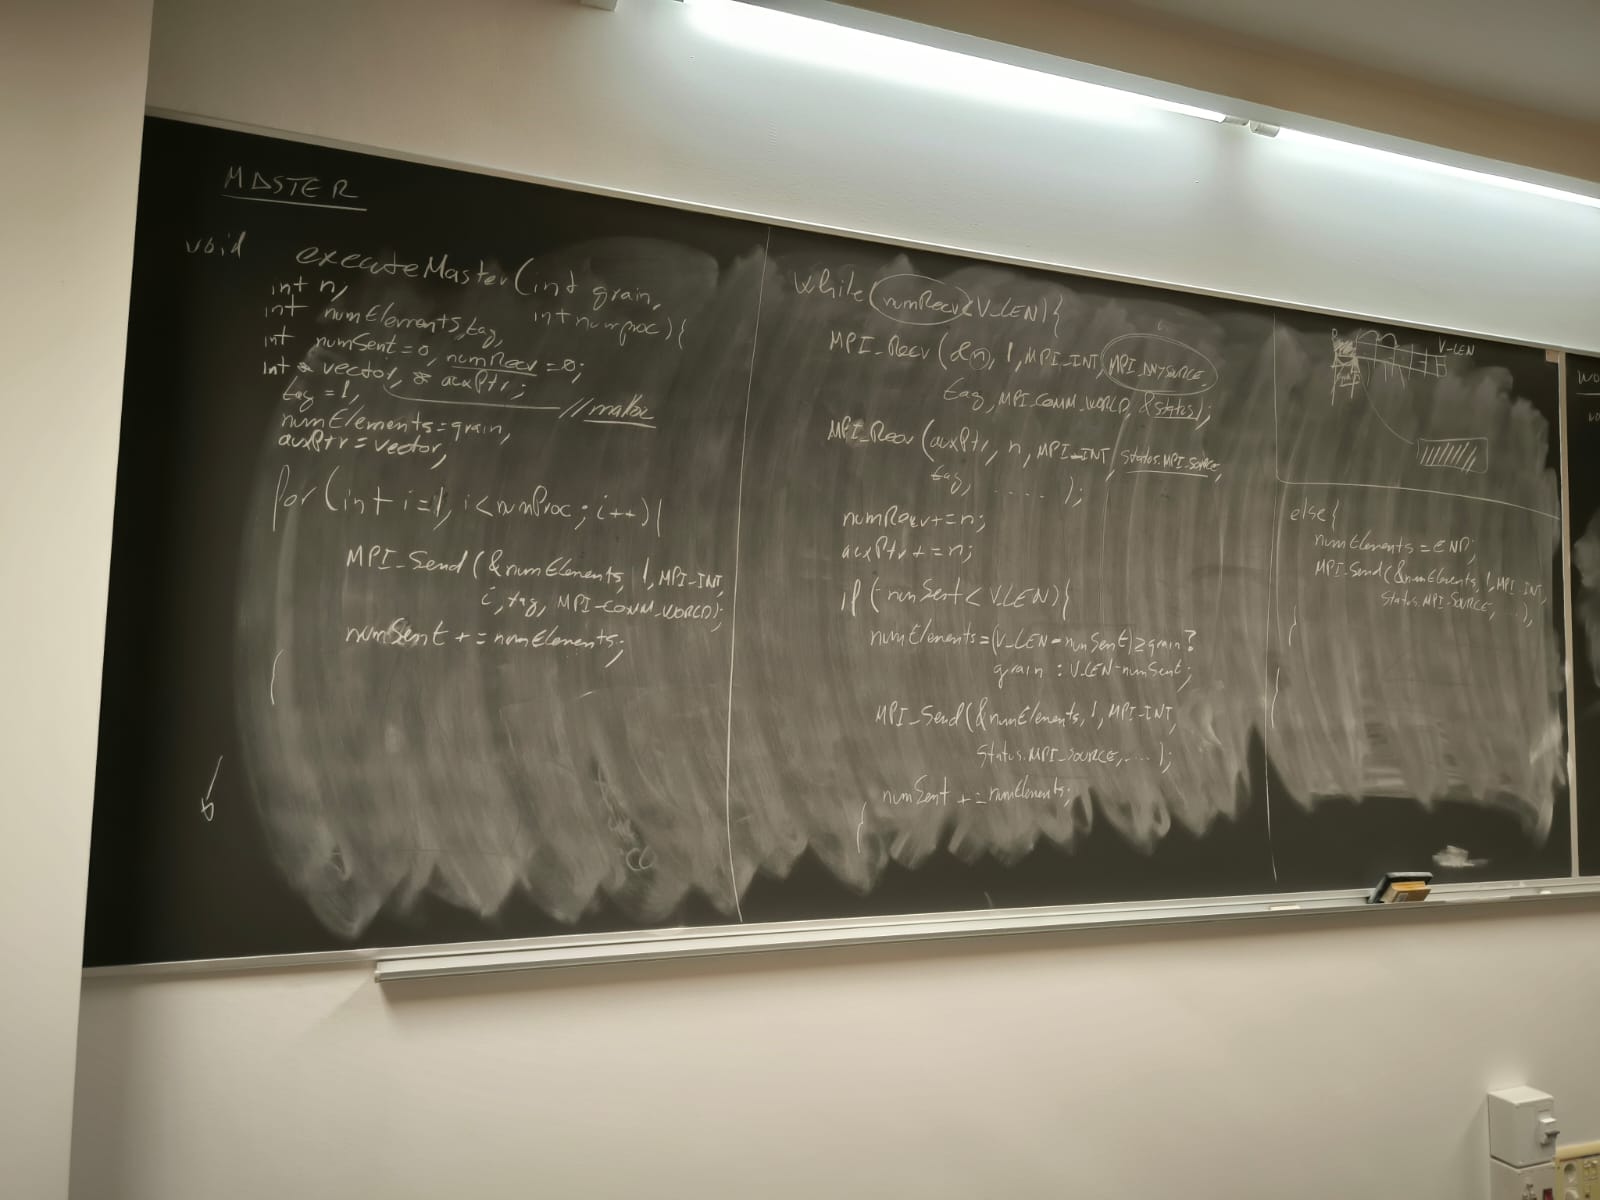 MASTER
void executeMaster(int grain,
int numproc){
int n,
int numElements, tag,
int numSent=0, numRecv=0;
int * vector, * auxPtr;
tag=1, // malloc
numElements=grain,
auxPtr=vector,
for(int i=1, i<numProc; i++){
MPI_Send(&numElements, 1, MPI_INT,
i, tag, MPI_COMM_WORLD);
numSent += numElements;
}
while(numRecv<V_LEN){
MPI_Recv(&n, 1, MPI_INT, MPI_ANYSOURCE,
tag, MPI_COMM_WORLD, &status);
MPI_Recv(auxPtr, n, MPI_INT, status.MPI_SOURCE,
tag, ..... );
numRecv+=n;
auxPtr+=n;
if(numSent<V_LEN){
numElements=(V_LEN-numSent)≥grain?
grain : V_LEN-numSent;
MPI_Send(&numElements, 1, MPI_INT,
status.MPI_SOURCE, .... );
numSent += numElements;
}
V_LEN
else{
numElements=END;
MPI_Send(&numElements, 1, MPI_INT,
status.MPI_SOURCE, ... );
}
}